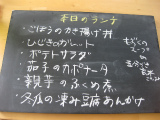 本日のランチ
・ごぼうのかき揚げ丼
・ひじきのガレット
・ポテトサラダ
・茄子のカポナータ
・親芋のふくめ煮
・冬瓜の凍み豆腐あんかけ
もずくの
スープ